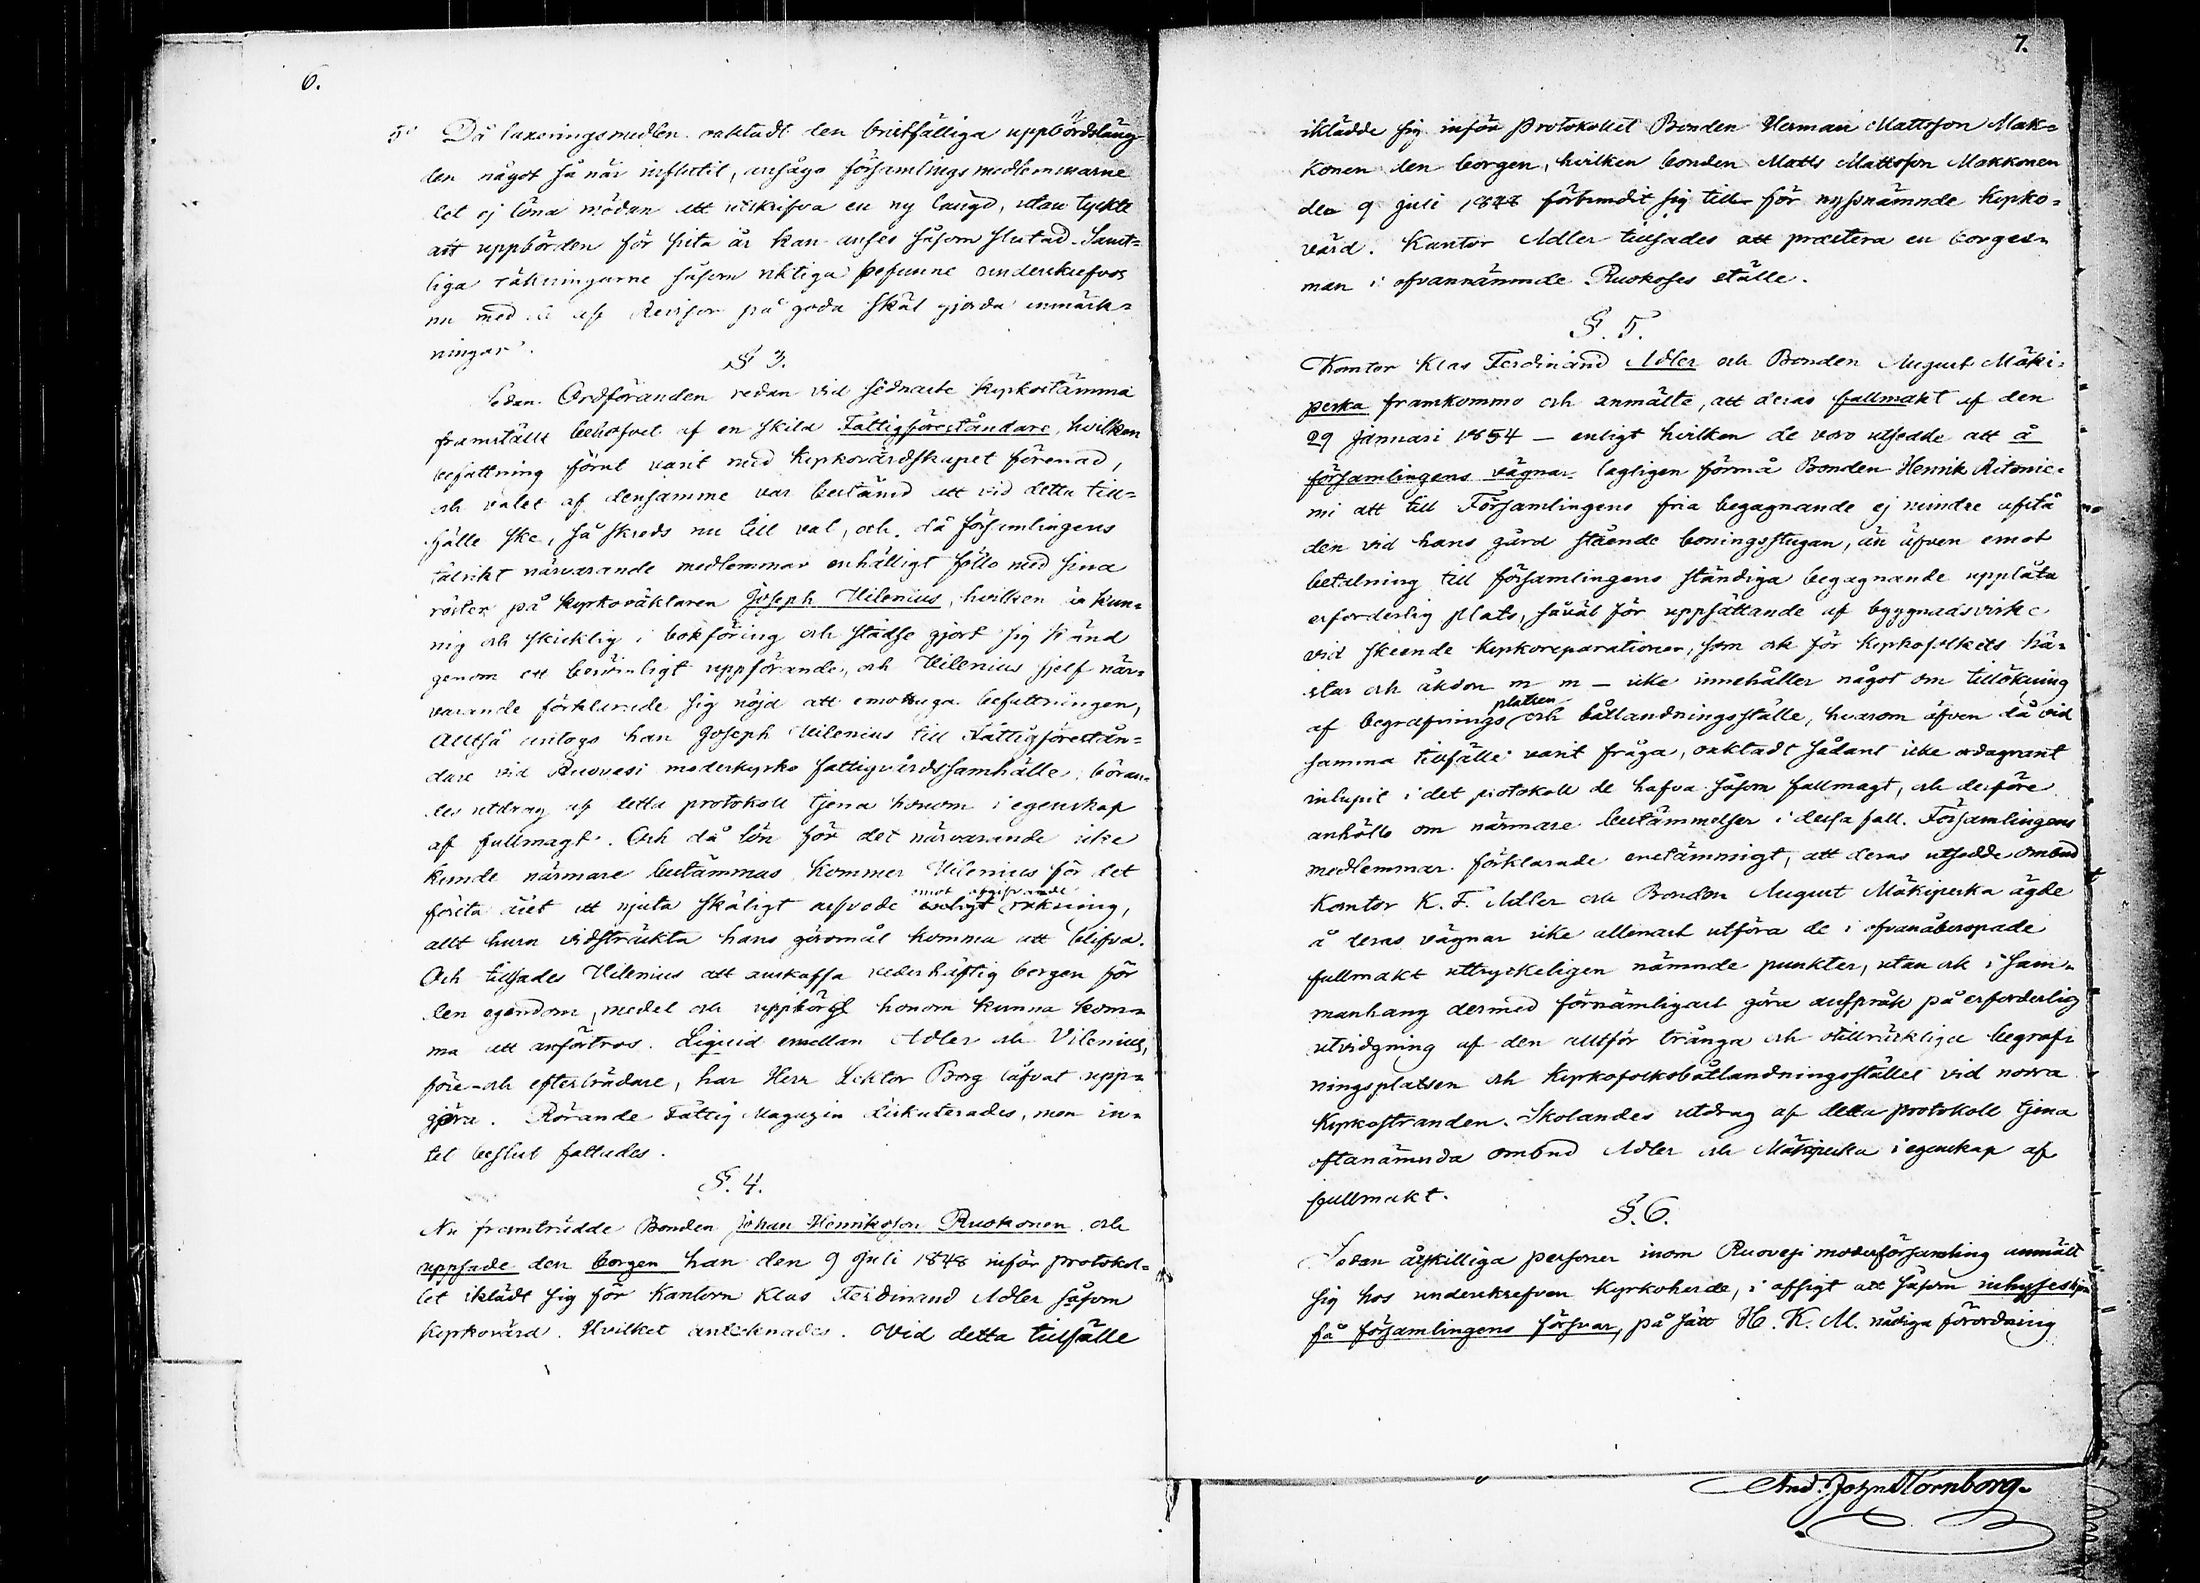 6.
5o Då taxeringsmedlen oaktadt den bristfälliga uppbördsläng
den något så när influtit, ansågo församlingsmedlemmarne
det ej löna mödan att utskrifva en ny längd, utan tyckte
att uppbörden för sista år kan anses såsom slutad. Samt-
liga räkningarne såsom riktiga befunne underskrefvos
nu med de af Revisor på goda skäl gjorda anmärk-
ningar.
§ 3.
Sedan Ordföranden redan vid sednaste kyrkostämma
framställt behofvet af en skild Fattigföreståndare, hvilken
befattning förut varit med kyrkovärdskapet förenad,
och valet af densamme var bestämd att vid detta till-
fälle ske, så skreds nu till val, och då församlingens
talrikt närvarande medlemmar enhälligt föllo med sina
röster på kyrkoväktaren Joseph Vilenius, hvilken är kun-
nig och skicklig i bokföring och städse gjort sig känd
genom ett berömligt uppförande, och Vilenius sjelf när-
varande förklarade sig nöjd att emottaga befattningen,
Alltså antogs han Joseph Vilenius till Fattigförestån-
dare vid Ruovesi moderkyrko fattigvårdssamhälle, böran-
des utdrag af detta protokoll tjena honom i egenskap
af fullmagt. Och då lön för det närvarande icke
kunde närmare bestämmas kommer Vilenius för det
emot afgifvande
första året att njuta skäligt arfvode enligt räkning,
allt huru vidsträckta hans göromål komma att blifva.
Och tillsades Vilenius att anskaffa vederhäftig borgen för
den egendom, medel och uppbörd honom kunna kom-
ma att anförtros. Liquid emellan Adler och Vilenius,
före- och efterträdare, har Herr Lektor Borg låfvat upp-
göra. Rörande Fattig Magazin diskuterades, men in-
tet beslut fattades.
§. 4.
Nu framträdde Bonden Johan Henriksson Ruokonen och
uppsade den borgen han den 9 Juli 1848 inför protokol-
let iklädt sig för Kantorn Klas Ferdinand Adler såsom
kyrkovärd. Hvilket antecknades. Vid detta tillfälle
7.
iklädde sig inför Protokollet Bonden Herman Mattsson Mak-
konen den borgen, hvilken bonden Matts Mattsson Makkonen
den 9 Juli 1848 förbundit sig till för nyssnämnde kyrko-
värd. Kantor Adler tillsades att præstera en borges-
man i ofvannämnde Ruokoses ställe.
§. 5.
Kantor Klas Ferdinand Adler och Bonden August Mäki-
peska framkommo och anmälte, att deras fullmakt af den
29 Januari 1854 — enligt hvilken de voro utsedde att å
församlingens vägnar lagligen förmå Bonden Henrik Ritonie-
mi att till Församlingens fria begagnande ej mindre afstå
den vid hans gård stående boningsstugan, än äfven emot
betalning till församlingens ständiga begagnande upplåta
erforderlig plats, såväl för uppsättande af byggnadsvirke
vid skeende kyrkoreparationer, som ock för kyrkofolkets hä-
star och åkdon m m — icke innehåller något om tillökning
platsen
af begrafnings och båtlandningsställe, hvarom äfven då vid
samma tillfälle varit fråga, oaktadt sådant icke ordagrant
inlupit i det protokoll de hafva såsom fullmagt, och derföre
anhöllo om närmare bestämmelser i dessa fall. Församlingens
medlemmar förklarade enstämmigt, att deras utsedde ombud
Kantor K. F. Adler och Bonden August Mäkipeska ägde
å deras vägnar icke allenast utföra de i ofvanåberopade
fullmakt uttryckeligen nämnde punkter, utan ock i sam-
manhang dermed förnämligast göra anspråk på erforderlig
utvidgning af den alltför trånga och otillräckliga begraf-
ningsplatsen och kyrkofolksbåtlandningsstället vid norra
kyrkostranden. Skolandes utdrag af detta protokoll tjena
oftanämnda ombud Adler och Mäkipeska i egenskap af
fullmakt.
§. 6.
Sedan åtskilliga personer inom Ruovesi moderförsamling anmält
sig hos underskrefven kyrkoherde, i afsigt att såsom inhyseshjon
få församlingens försvar, på sätt H. K. M. nådiga förordning
And. Johzn Hornborg.